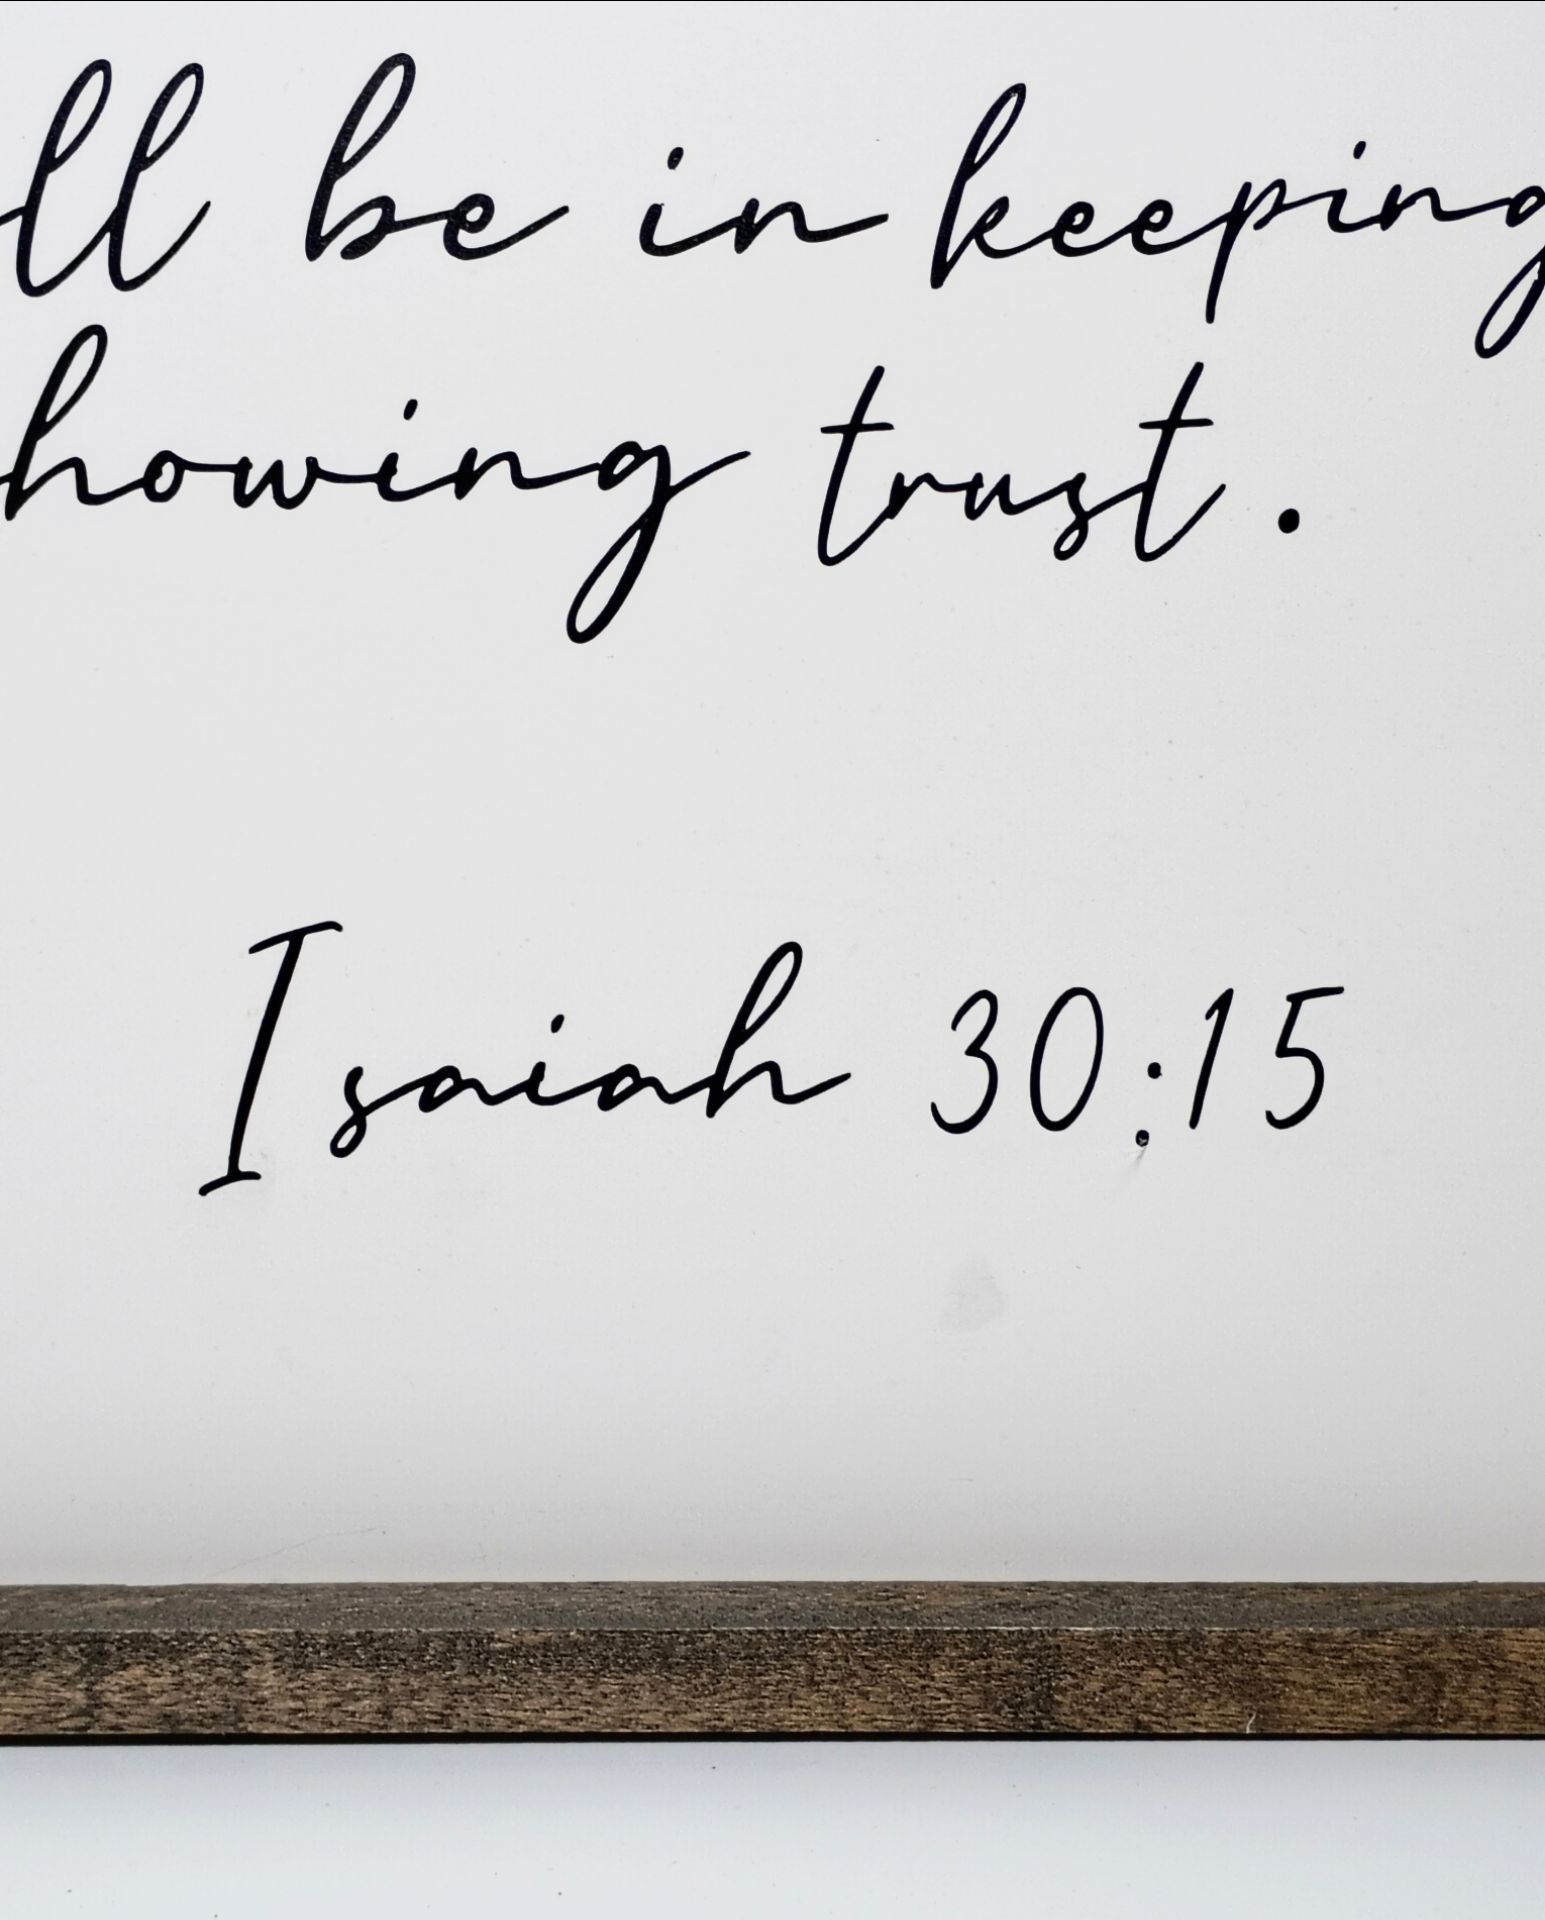 ll be in keeping
howing trust.
Isaiah 30:15